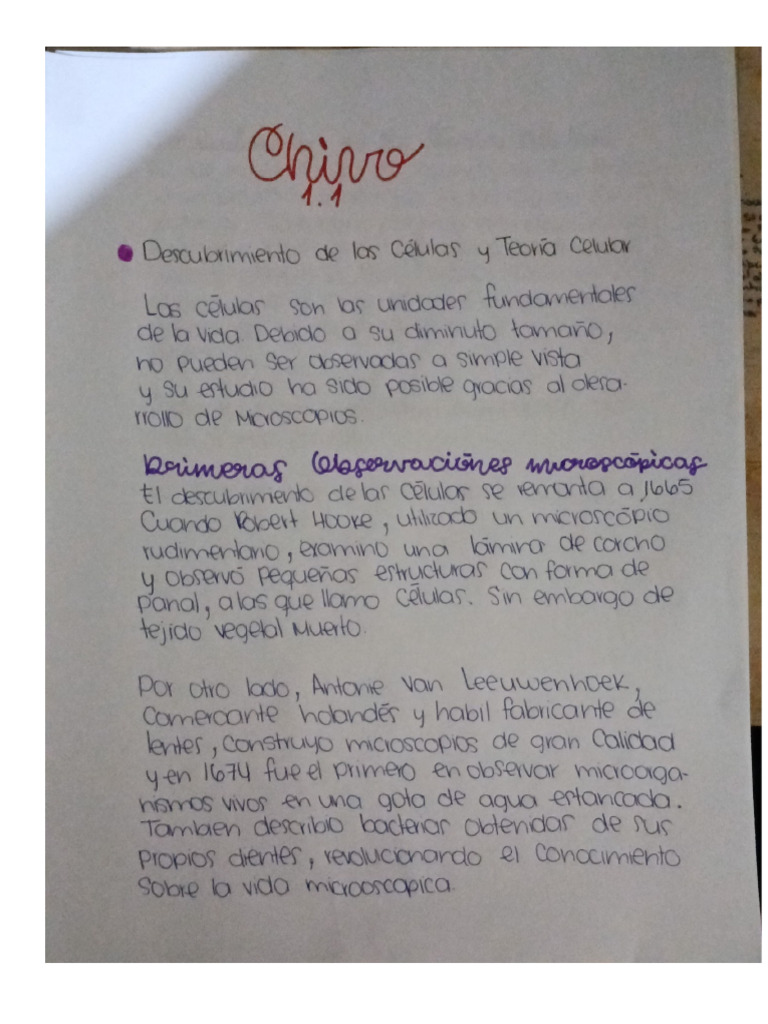 Chivo
1.1
Descubrimiento de las Células y Teoría Celular
Las células son las unidades fundamentales
de la vida. Debido a su diminuto tamaño,
no pueden ser observadas a simple vista
y su estudio ha sido posible gracias al desa-
rrollo de Microscopios.
Primeras Observaciónes microscópicas
El descubrimento de las células se remonta a 1665
Cuando Robert Hooke, utilizado un microscópio
rudimentario, examino una lámina de corcho
y observó pequeñas estructuras con forma de
panal, a las que llamo Células. Sin embargo de
tejido vegetal Muerto.
Por otro lado, Antonie Van Leeuwenhoek,
Comercante holandés y habil fabricante de
lentes, construyo microscopios de gran Calidad
y en 1674 fue el primero en observar microorga-
nismos vivos en una gota de agua estancada.
Tambien describio bacterias obtenidas de sus
propios dientes, revolucionando el conocimiento
Sobre la vida microoscopica.